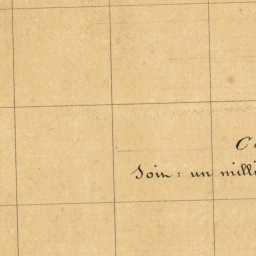 Soin : un mill